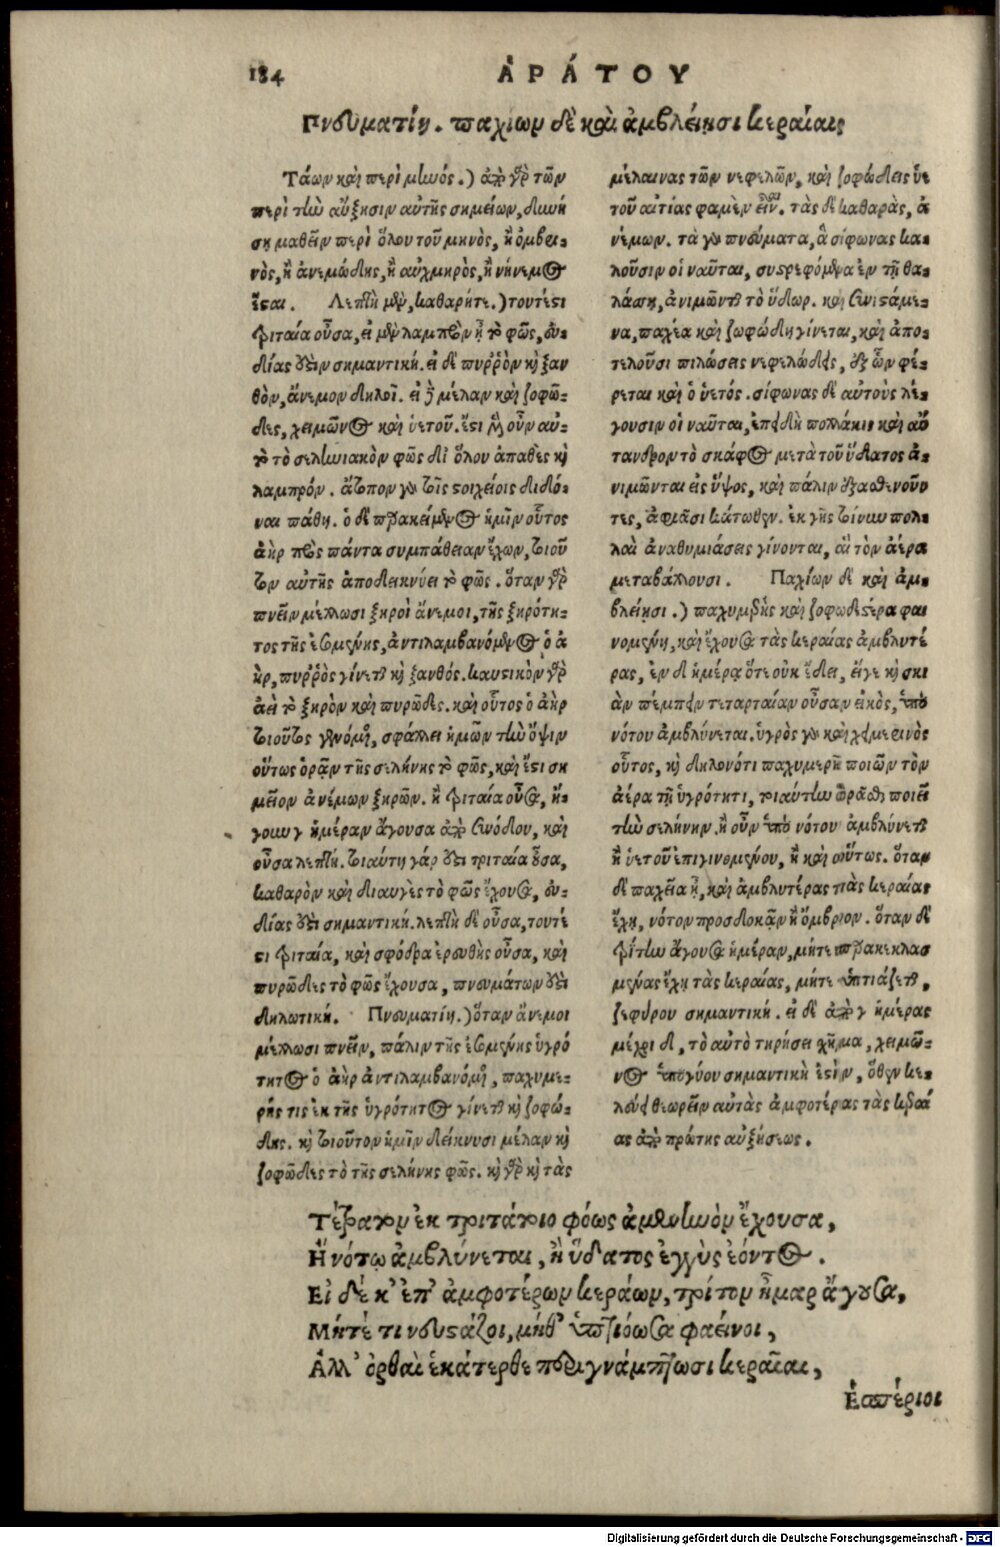 184
ἈΡΆΤΟΥ
Πνευματίη. παχίων δὲ καὶ ἀμβλείῃσι κεραίαις
Τάων καὶ περὶ μηνός.) ἀπὸ γὰρ τῶν
περὶ τὴν αὔξησιν αὐτῆς σημείων, δυνή
σῃ μαθεῖν περὶ ὅλου τοῦ μηνὸς, ἢ ὀμβει-
νὸς, ἢ ἀνεμώδης, ἢ αὐχμηρὸς, ἢ νήνεμος
ἔσται. Λεπτὴ μὲν, καθαρήτε.) τουτέστι
τριταία οὖσα, εἰ μὲν λαμπρὸν ᾖ τὸ φῶς, εὐ-
δίας ἐστὶν σημαντική. εἰ δὲ πυῤῥὸν καὶ ξαν
θὸν, ἄνεμον δηλοῖ. εἰ δὲ μέλαν καὶ ζοφῶ-
δες, χειμῶνος καὶ ὑετοῦ. ἔστι μὲν οὖν αὐ-
τὸ τὸ σεληνιακὸν φῶς δι' ὅλου ἀπαθὲς καὶ
λαμπρόν. ἄτοπον γὰρ τοῖς στοιχείοις διδό-
ναι πάθη. ὁ δὲ παρακείμενος ἡμῖν οὗτος
ἀὴρ πρὸς πάντα συμπάθειαν ἔχων, τοιοῦ
τον αὐτῆς ἀποδεικνύει τὸ φῶς. ὅταν γὰρ
πνεῖν μέλλωσι ξηροὶ ἄνεμοι, τῆς ξηρότη-
τος τῆς ἐσομένης, ἀντιλαμβανόμενος ὁ ἀ
ὴρ, πυῤῥὸς γίνεται καὶ ξανθός. καυστικὸν γὰρ
ἀεὶ τὸ ξηρὸν καὶ πυρῶδες. καὶ οὗτος ὁ ἀὴρ
τοιοῦτος γενόμενος, σφάλλει ἡμῶν τὴν ὄψιν
οὕτως ὁρᾷν τῆς σελήνης τὸ φῶς, καὶ ἔστι ση
μεῖον ἀνέμων ξηρῶν. ἢ τριταία οὖσα, ἤ-
γουν γ ἡμέραν ἄγουσα ἀπὸ συνόδου, καὶ
οὖσα λεπτή. τοιαύτη γάρ ἐστι τριταία οὖσα,
καθαρὸν καὶ διαυγὲς τὸ φῶς ἔχουσα, εὐ-
δίας ἐστὶ σημαντική. λεπτὴ δὲ οὖσα, τουτέ
στι τριταία, καὶ σφόδρα ἐρευθὴς οὖσα, καὶ
πυρῶδες τὸ φῶς ἔχουσα, πνευμάτων ἐστὶ
δηλωτική. Πνευματίη.) ὅταν ἄνεμοι
μέλλωσι πνεῖν, πάλιν τῆς ἐσομένης ὑγρό
τητος ὁ ἀὴρ ἀντιλαμβανόμενος, παχυμε-
ρής τις ἐκ τῆς ὑγρότητος γίνεται καὶ ζοφώ-
δης. καὶ τοιοῦτον ἡμῖν δείκνυσι μέλαν καὶ
ζοφῶδες τὸ τῆς σελήνης φῶς. καὶ γὰρ καὶ τὰς
μέλαινας τῶν νεφελῶν, καὶ ζοφώδεις ὑε
τοῦ αἰτίας φαμὲν εἶναι. τὰς δὲ καθαρὰς, ἀ
νέμων. τὰ γὰρ πνεύματα, ἃ σίφωνας κα-
λοῦσιν οἱ ναῦται, συστρεφόμενα ἐν τῇ θα-
λάσσῃ, ἀνιμῶνται τὸ ὕδωρ. καὶ συνιστάμε-
να, παχέα καὶ ζωφώδη γίνεται, καὶ ἀπο-
τελοῦσι πιλώσεις νεφελώδεις, ἐξ ὧν φέ-
ρεται καὶ ὁ ὑετός. σίφωνας δὲ αὐτοὺς λέ-
γουσιν οἱ ναῦται, ἐπειδὴ πολλάκις καὶ αὔ
τανδρον τὸ σκάφος μετὰ τοῦ ὕδατος ἀ-
νιμῶνται εἰς ὕψος, καὶ πάλιν ἐξασθενοῦν
τες, ἀφιᾶσι κάτωθεν. ἐκ γῆς τοίνυν πολ-
λαὶ ἀναθυμιάσεις γίνονται, αἳ τὸν ἀέρα
μεταβάλλουσι. Παχίων δὲ καὶ ἀμ-
βλείῃσι.) παχυμερὴς καὶ ζοφωδεστέρα φαι
νομένη, καὶ ἔχουσα τὰς κεραίας ἀμβλυτέ
ρας, ἐν δὲ ἡμέρᾳ ὅτε οὐκ ἔδει, εἴγε καὶ σκι
ὰν πέμπειν τεταρταίαν οὖσαν εἰκὸς, ὑπὸ
νότου ἀμβλύνεται. ὑγρὸς γὰρ καὶ χειμερινὸς
οὗτος, καὶ δηλονότι παχυμερῆ ποιῶν τὸν
ἀέρα τῇ ὑγρότητι, τοιαύτην ὁρᾶσθαι ποιεῖ
τὴν σελήνην. ἢ οὖν ὑπὸ νότου ἀμβλύνεται
ἢ ὑετοῦ ἐπιγινομένου, ἢ καὶ οὕτως. ὅταν
δὲ παχεῖα ᾖ, καὶ ἀμβλυτέρας τὰς κεραίας
ἔχῃ, νότον προσδοκᾷν ἢ ὄμβριον. ὅταν δὲ
τρίτην ἄγουσα ἡμέραν, μήτε παρακεκλασ
μένας ἔχῃ τὰς κεραίας, μήτε ὑπτιάζεται,
ζεφύρου σημαντική. εἰ δὲ ἀπὸ γ ἡμέρας
μέχρι δ, τὸ αὐτὸ τηρήσει σχῆμα, χειμῶ-
νος ὑπογύου σημαντικὴ ἐστὶν, ὅθεν κε-
λεύει θεωρεῖν αὐτὰς ἀμφοτέρας τὰς κεραί
ας ἀπὸ πρώτης αὐξήσεως.
Τέτρατον ἐκ τριτάτοιο φόως ἀμενηνὸν ἔχουσα,
Ἢ νότῳ ἀμβλύνεται, ἢ ὕδατος ἐγγὺς ἐόντος.
Εἰ δέ κ' ἐπ' ἀμφοτέρων κεράων, τρίτον ἦμαρ ἄγουσα,
Μήτέ τι νευστάζοι, μήθ' ὑπτιόωσα φαείνοι,
Ἀλλ' ὀρθαὶ ἑκάτερθε περιγνάμπτωσι κεραῖαι,
Ἑσπέριοι
Digitalisierung gefördert durch die Deutsche Forschungsgemeinschaft - DFG